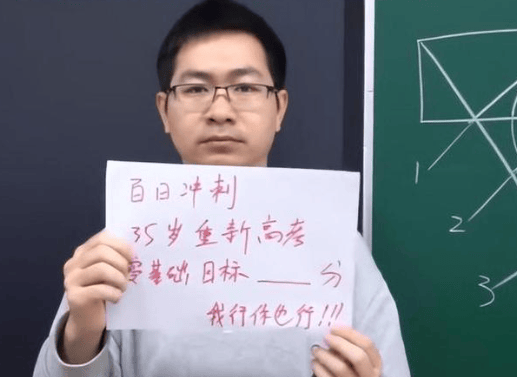 百日冲刺
35岁重新高考
零基础目标____分
我行你也行!!!
1
2
3